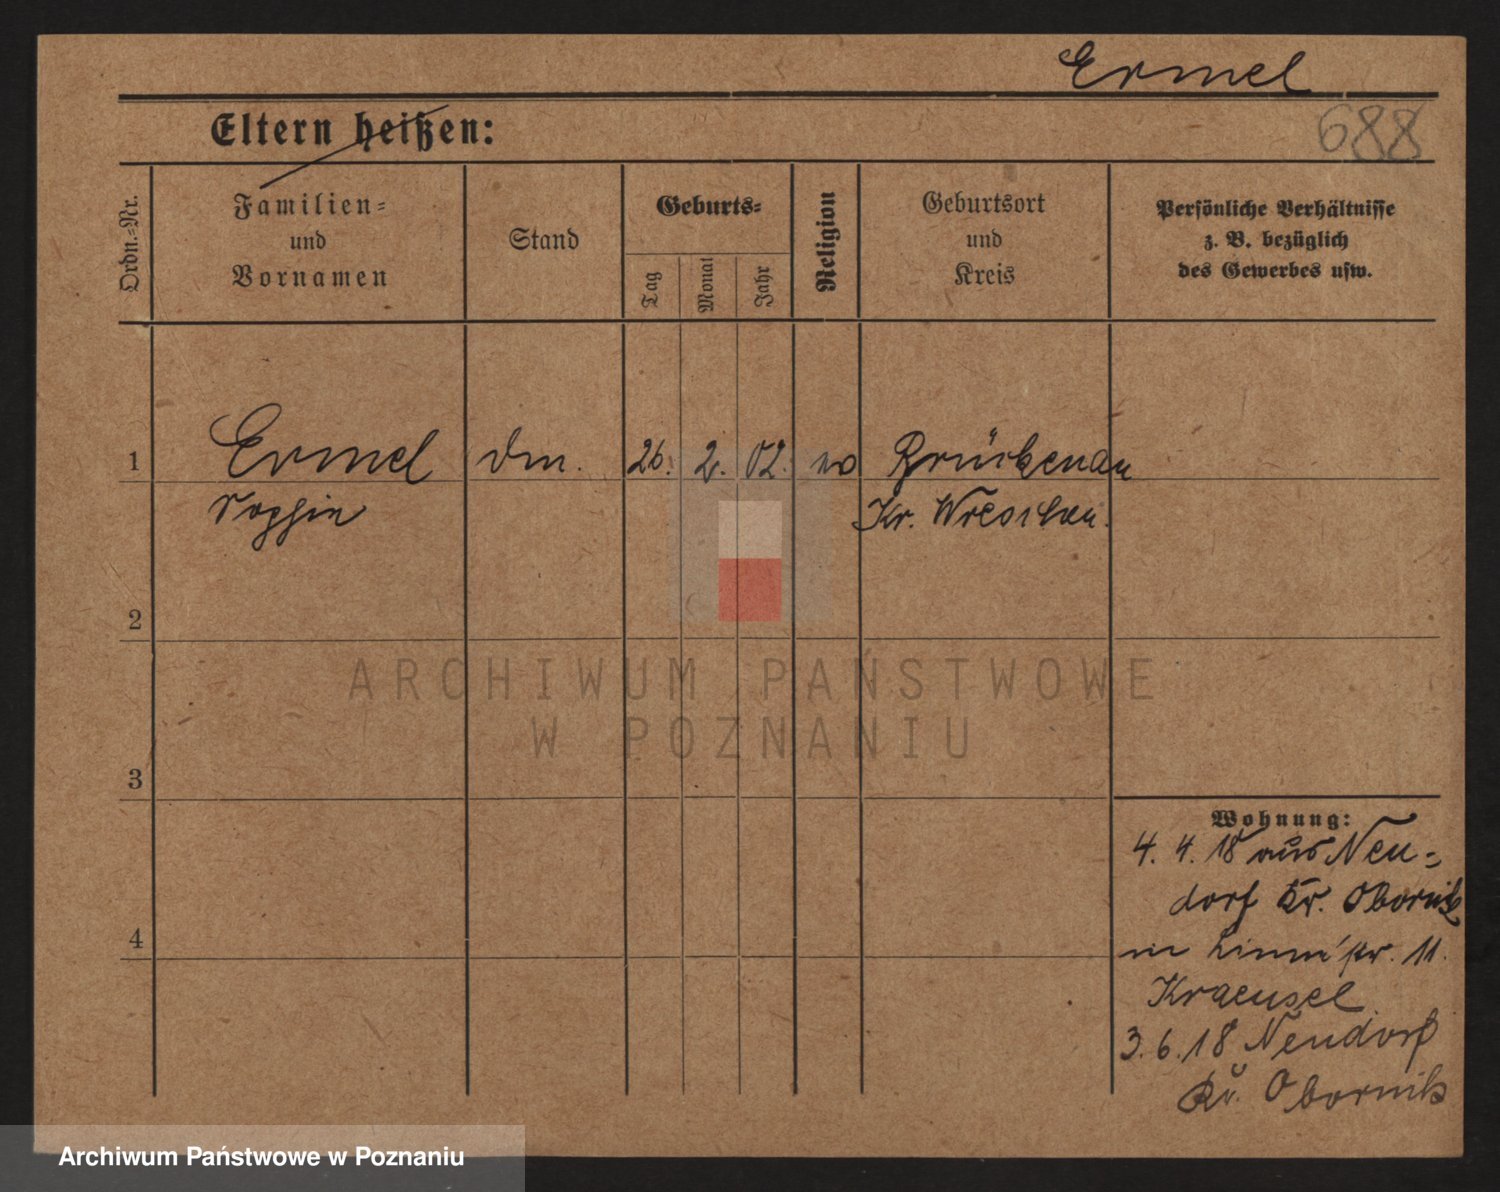 Ermel
688
Eltern heißen:
Ordn.-Nr.
Familien-
und
Vornamen
Stand
Geburts-
Tag
Monat
Jahr
Religion
Geburtsort
und
Kreis
Persönliche Verhältnisse
z. B. bezüglich
des Gewerbes usw.
1
Ermel
26. 2. 02.
Brückenau
Sophie
Kr. Wreschen.
2
ARCHIWUM PAŃSTWOWE
W POZNANIU
3
Wohnung:
4. 4. 18 aus Neu-
dorf Kr. Obornik
4
Linnéstr. 11.
Kraeusel
3. 6. 18 Neudorf
Kr. Obornik
Archiwum Państwowe w Poznaniu